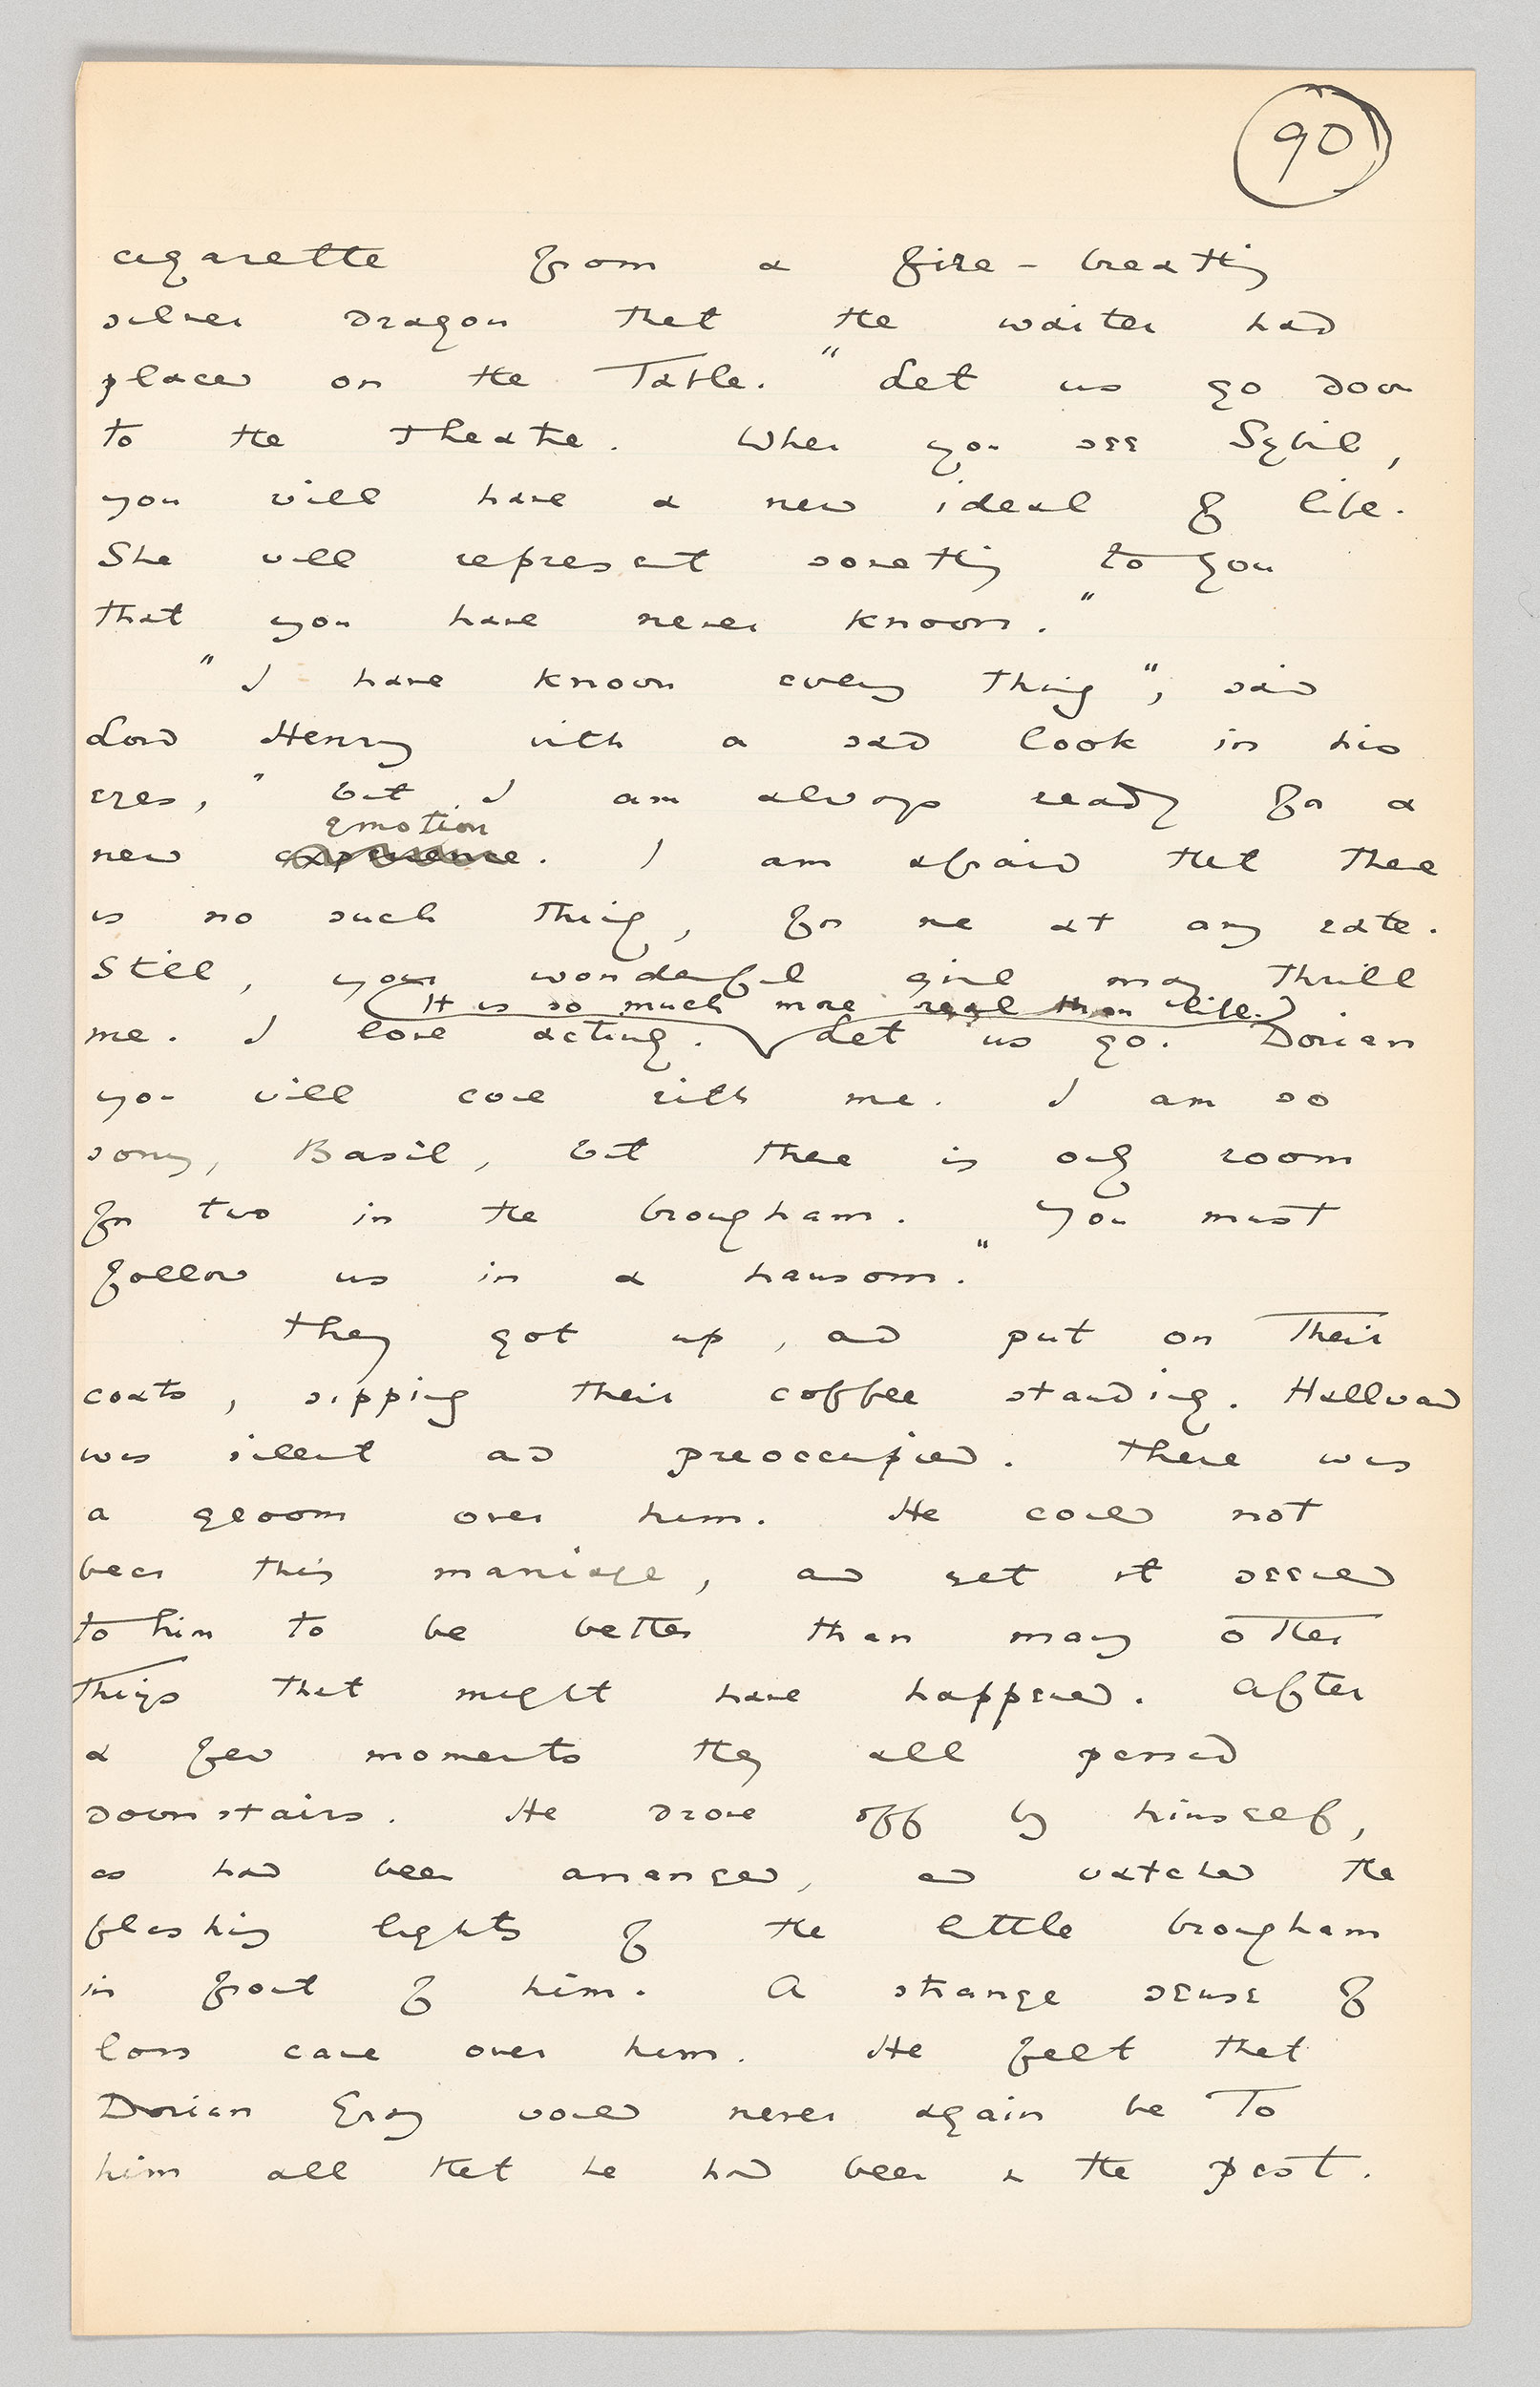 90
cigarette from a fire-breathing
silver dragon that the waiter had
placed on the Table. "Let us go down
to the Theatre. When you see Sybil,
you will have a new ideal of life.
She will represent something to you
that you have never known."
"I have known every thing", said
Lord Henry with a sad look in his
eyes, "but I am always ready for a
emotion
new experience. I am afraid that there
is no such thing, for me at any rate.
Still, your wonderful girl may thrill
It is so much more real than life.
me. I love acting. Let us go. Dorian
you will come with me. I am so
sorry, Basil, but there is only room
for two in the brougham. You must
follow us in a hansom."
They got up, and put on their
coats, sipping their coffee standing. Hallward
was silent and preoccupied. There was
a gloom over him. He could not
bear this marriage, and yet it seemed
to him to be better than many other
things that might have happened. After
a few moments they all passed
downstairs. He drove off by himself,
as had been arranged, and watched the
flashing lights of the little brougham
in front of him. A strange sense of
loss came over him. He felt that
Dorian Gray would never again be To
him all that he had been in the past.